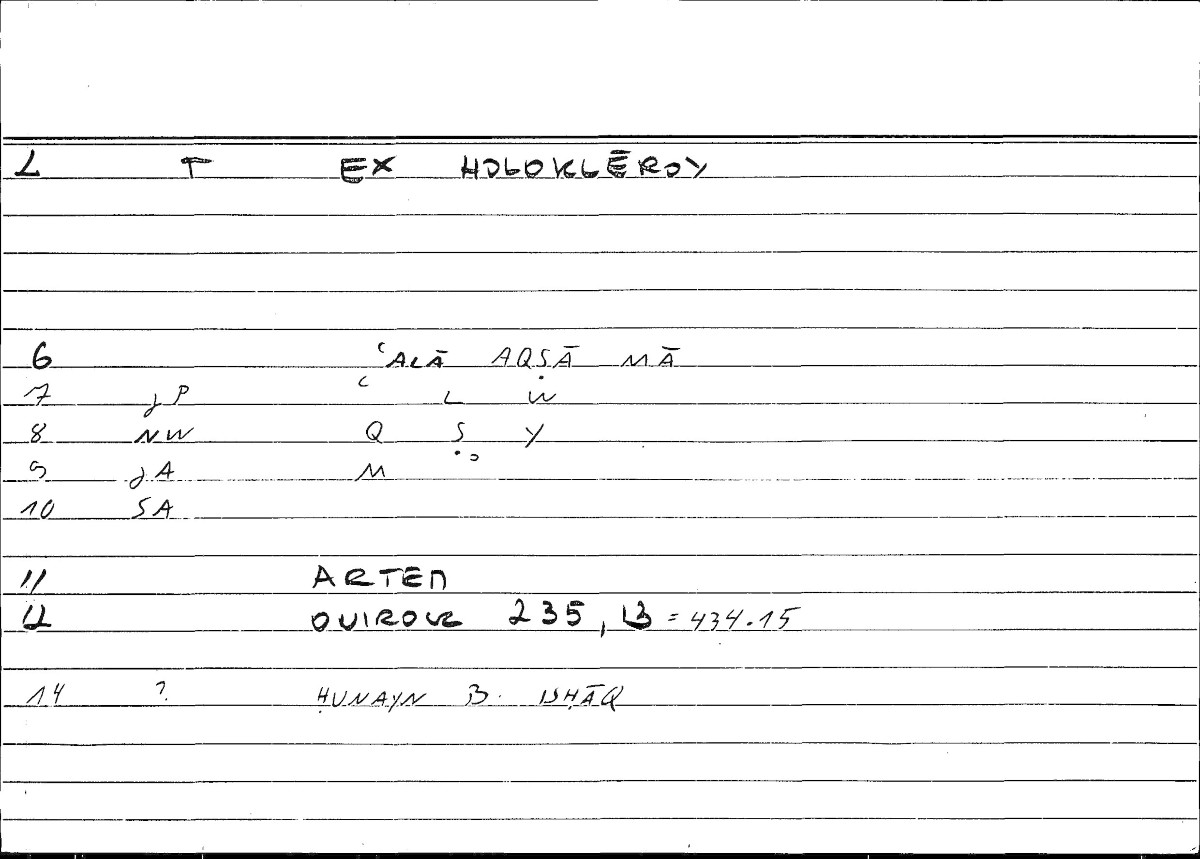 2 T EX HOLOKLĒROY
6 ʿALĀ AQṢĀ MĀ
7 JP ʿ L W
8 NW Q Ṣ Y
9 JA M
10 SA
11 ARTEM
12 ONIROCR 235, 13 = 434.15
14 ? ḤUNAYN B. ISḤĀQ